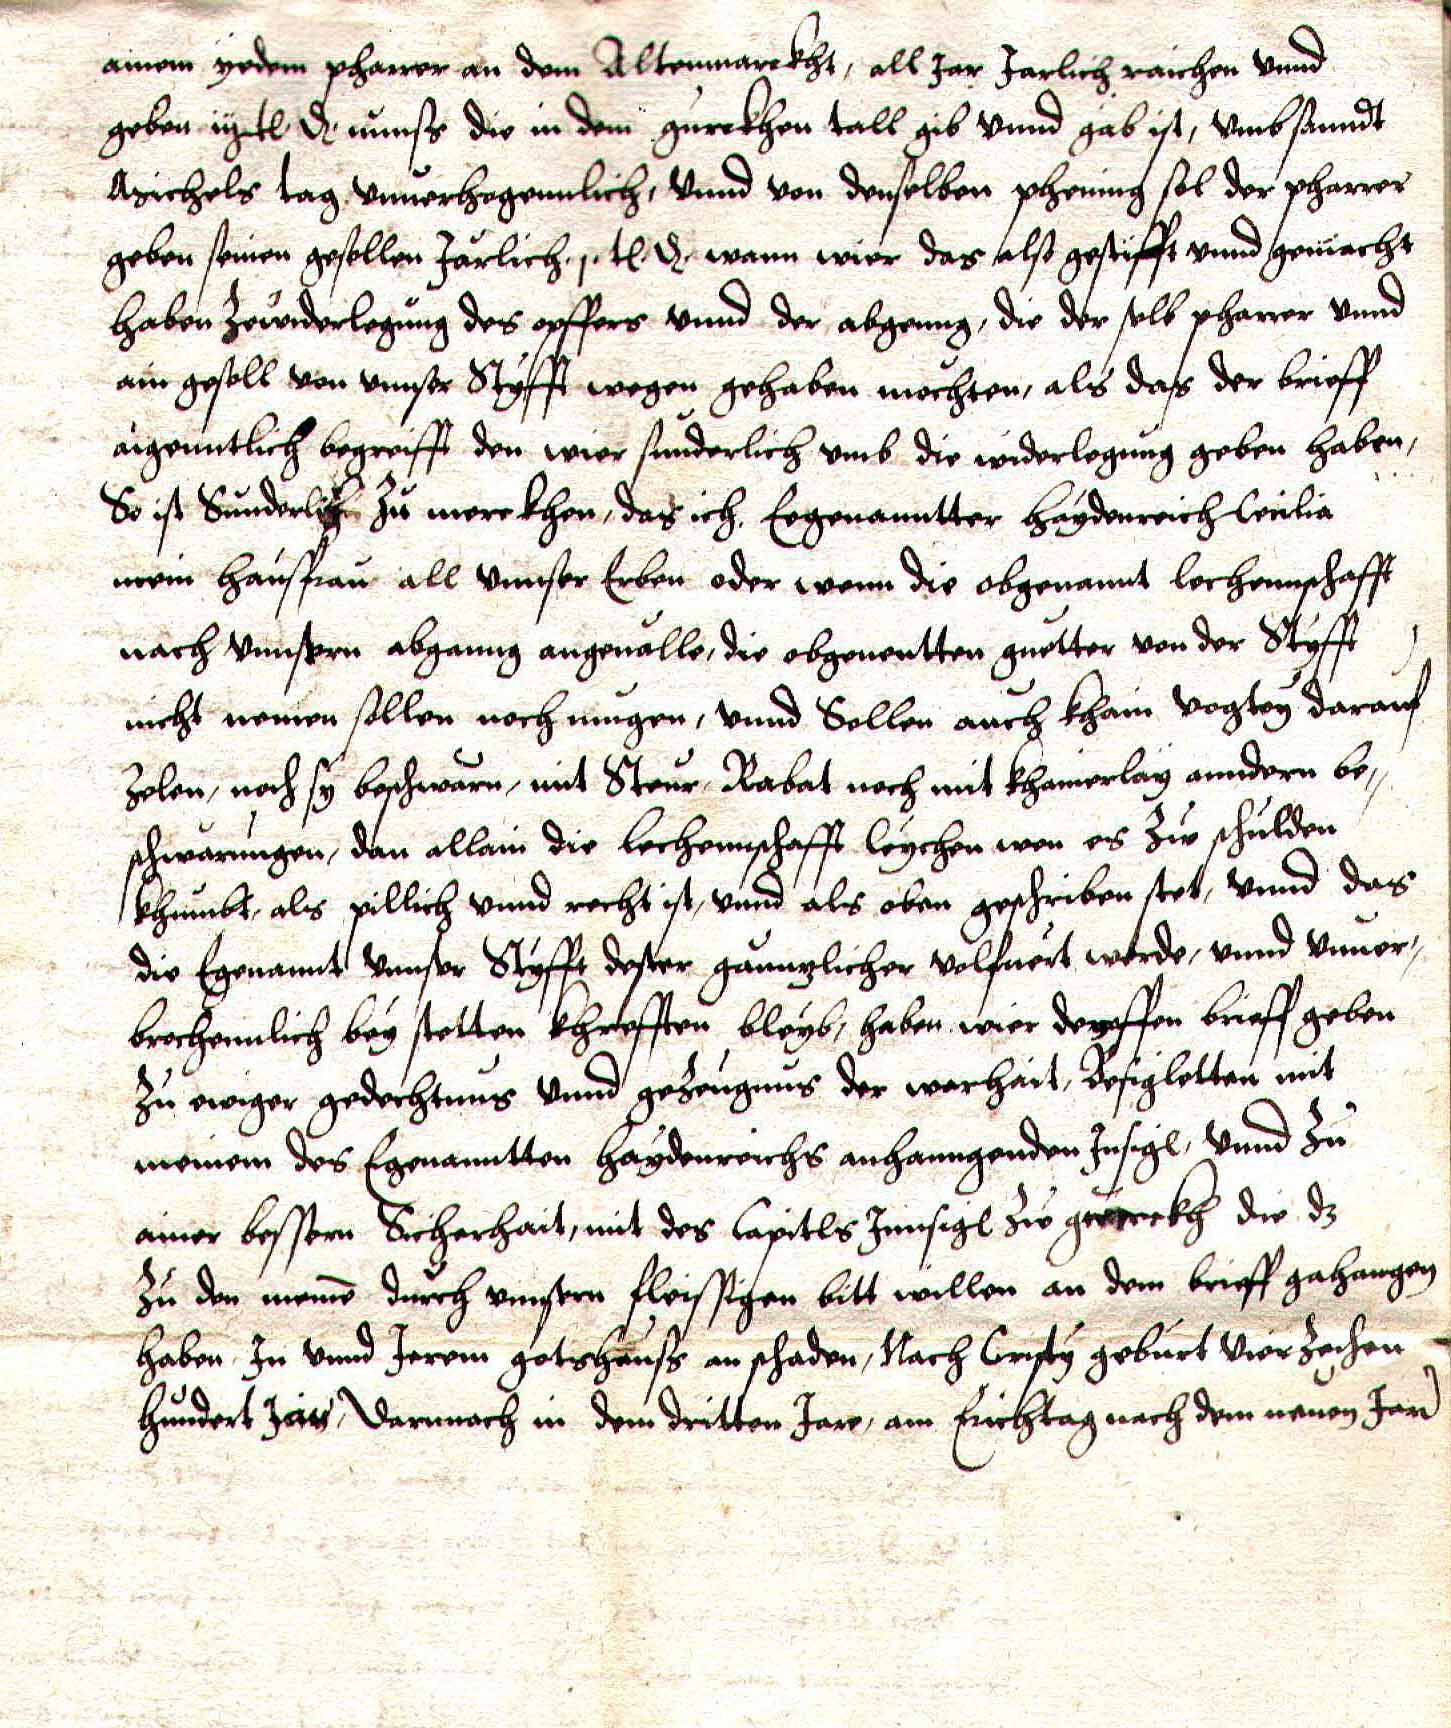 ainem yedem pharrer an dem Altenmarckht, all Jar Jarlich raichen vnnd
geben ij tl. ₰. munss die in dem gurckhen tall gib vnnd gäb ist, vmb sanndt
Michels tag vnuerhogennlich, vnnd von denselben phening sol der pharrer
geben seinen gesellen Järlich .j. tl. ₰. wann wier das also gestifft vnnd gemacht
haben zewiderlegung des opffers vnnd der abgenng, die der selb pharrer vnnd
ain gesell von vnnser Stÿfft wegen gehaben mochten, als das der brieff
aigenntlich begreifft den wier sunderlich vmb die widerlegung geben haben,
So ist Sunderlich zu merckhen, das ich Eegenanntter haÿdenreich Cecilia
mein hausfrau all vnnser Erben oder wenn die obgenannt lechennschafft
nach vnnsern abganng angeualle, die obgenentten guetter von der Stÿfft
nicht nemen sollen noch mugen, vnnd Sollen auch khain vogteÿ darauf
zelen, noch sy beschwärn, mit Steur, Rabat noch mit khainerlaÿ anndern be-
schwärungen, dan allain die lechennschafft leÿchen wen es zw schulden
khumbt, als pillich vnnd recht ist, vnnd als oben geschriben stet, vnnd das
die Egenannt vnnser Stÿfft dester gännzlicher volfuert werde, vnnd vnuer-
brochennlich beÿ stetten khrefften bleÿb, haben wier den offen brieff geben
zu ewiger gedechtnus vnnd gezeugnus der warhait, Besigletten mit
meinem des Egenanntten haÿdenreichs anhanngenden Jnsigl, vnnd zu
ainer bessern Sicherhait, mit des Capitls Jnnsigl zw gurckh die dz
zu den meinē durch vnnsern fleissigen bitt willen an dem brieff gehangen
haben Jn vnnd Jerem gotshauss an schaden, Nach Cristÿ geburt vierzechen
hundert Jar, Darnnach in dem dritten Jare, am Erichtag nach dem neuen Jar